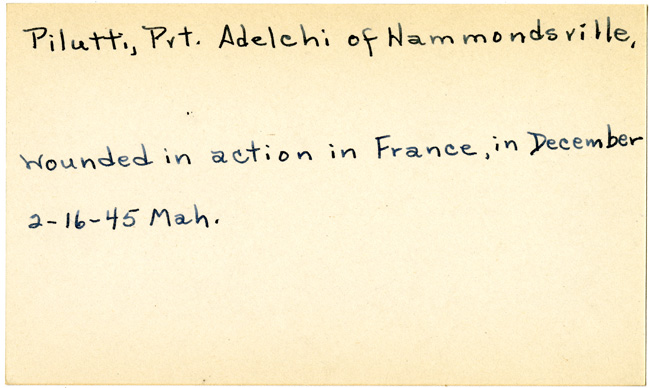 Pilutti, Prt. Adelchi of Hammondsville,
Wounded in action in France, in December
2-16-45 Mah.